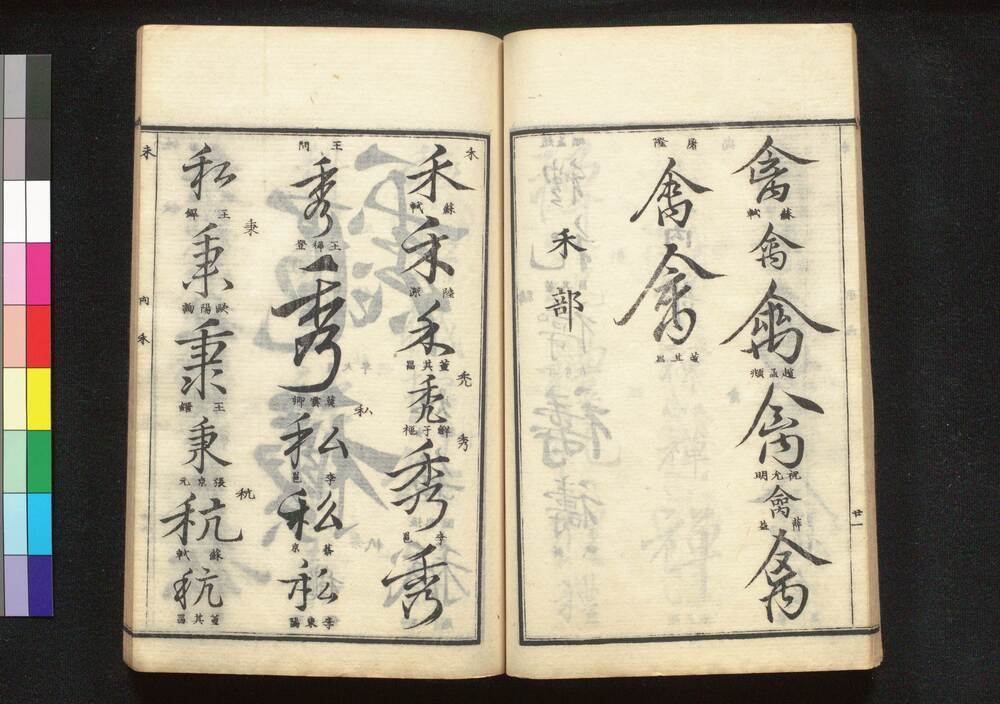 禽
蘇軾
禽
禽
趙孟頫
禽
祝允明
禽
薛益
禽
屠隆
禽
禽
董其昌
禾部
廿一
禾
禾
蘇軾
禾
陸深
禾
董其昌
禿
禿
鮮于樞
秀
秀
李邕
秀
王問
秀
王穉登
秀
莫雲卿
私
私
李邕
私
蔡京
私
李東陽
私
王鐸
秉
秉
歐陽詢
秉
王縉
秉
張京元
秔
秔
蘇軾
秔
董其昌
禾
内
禾